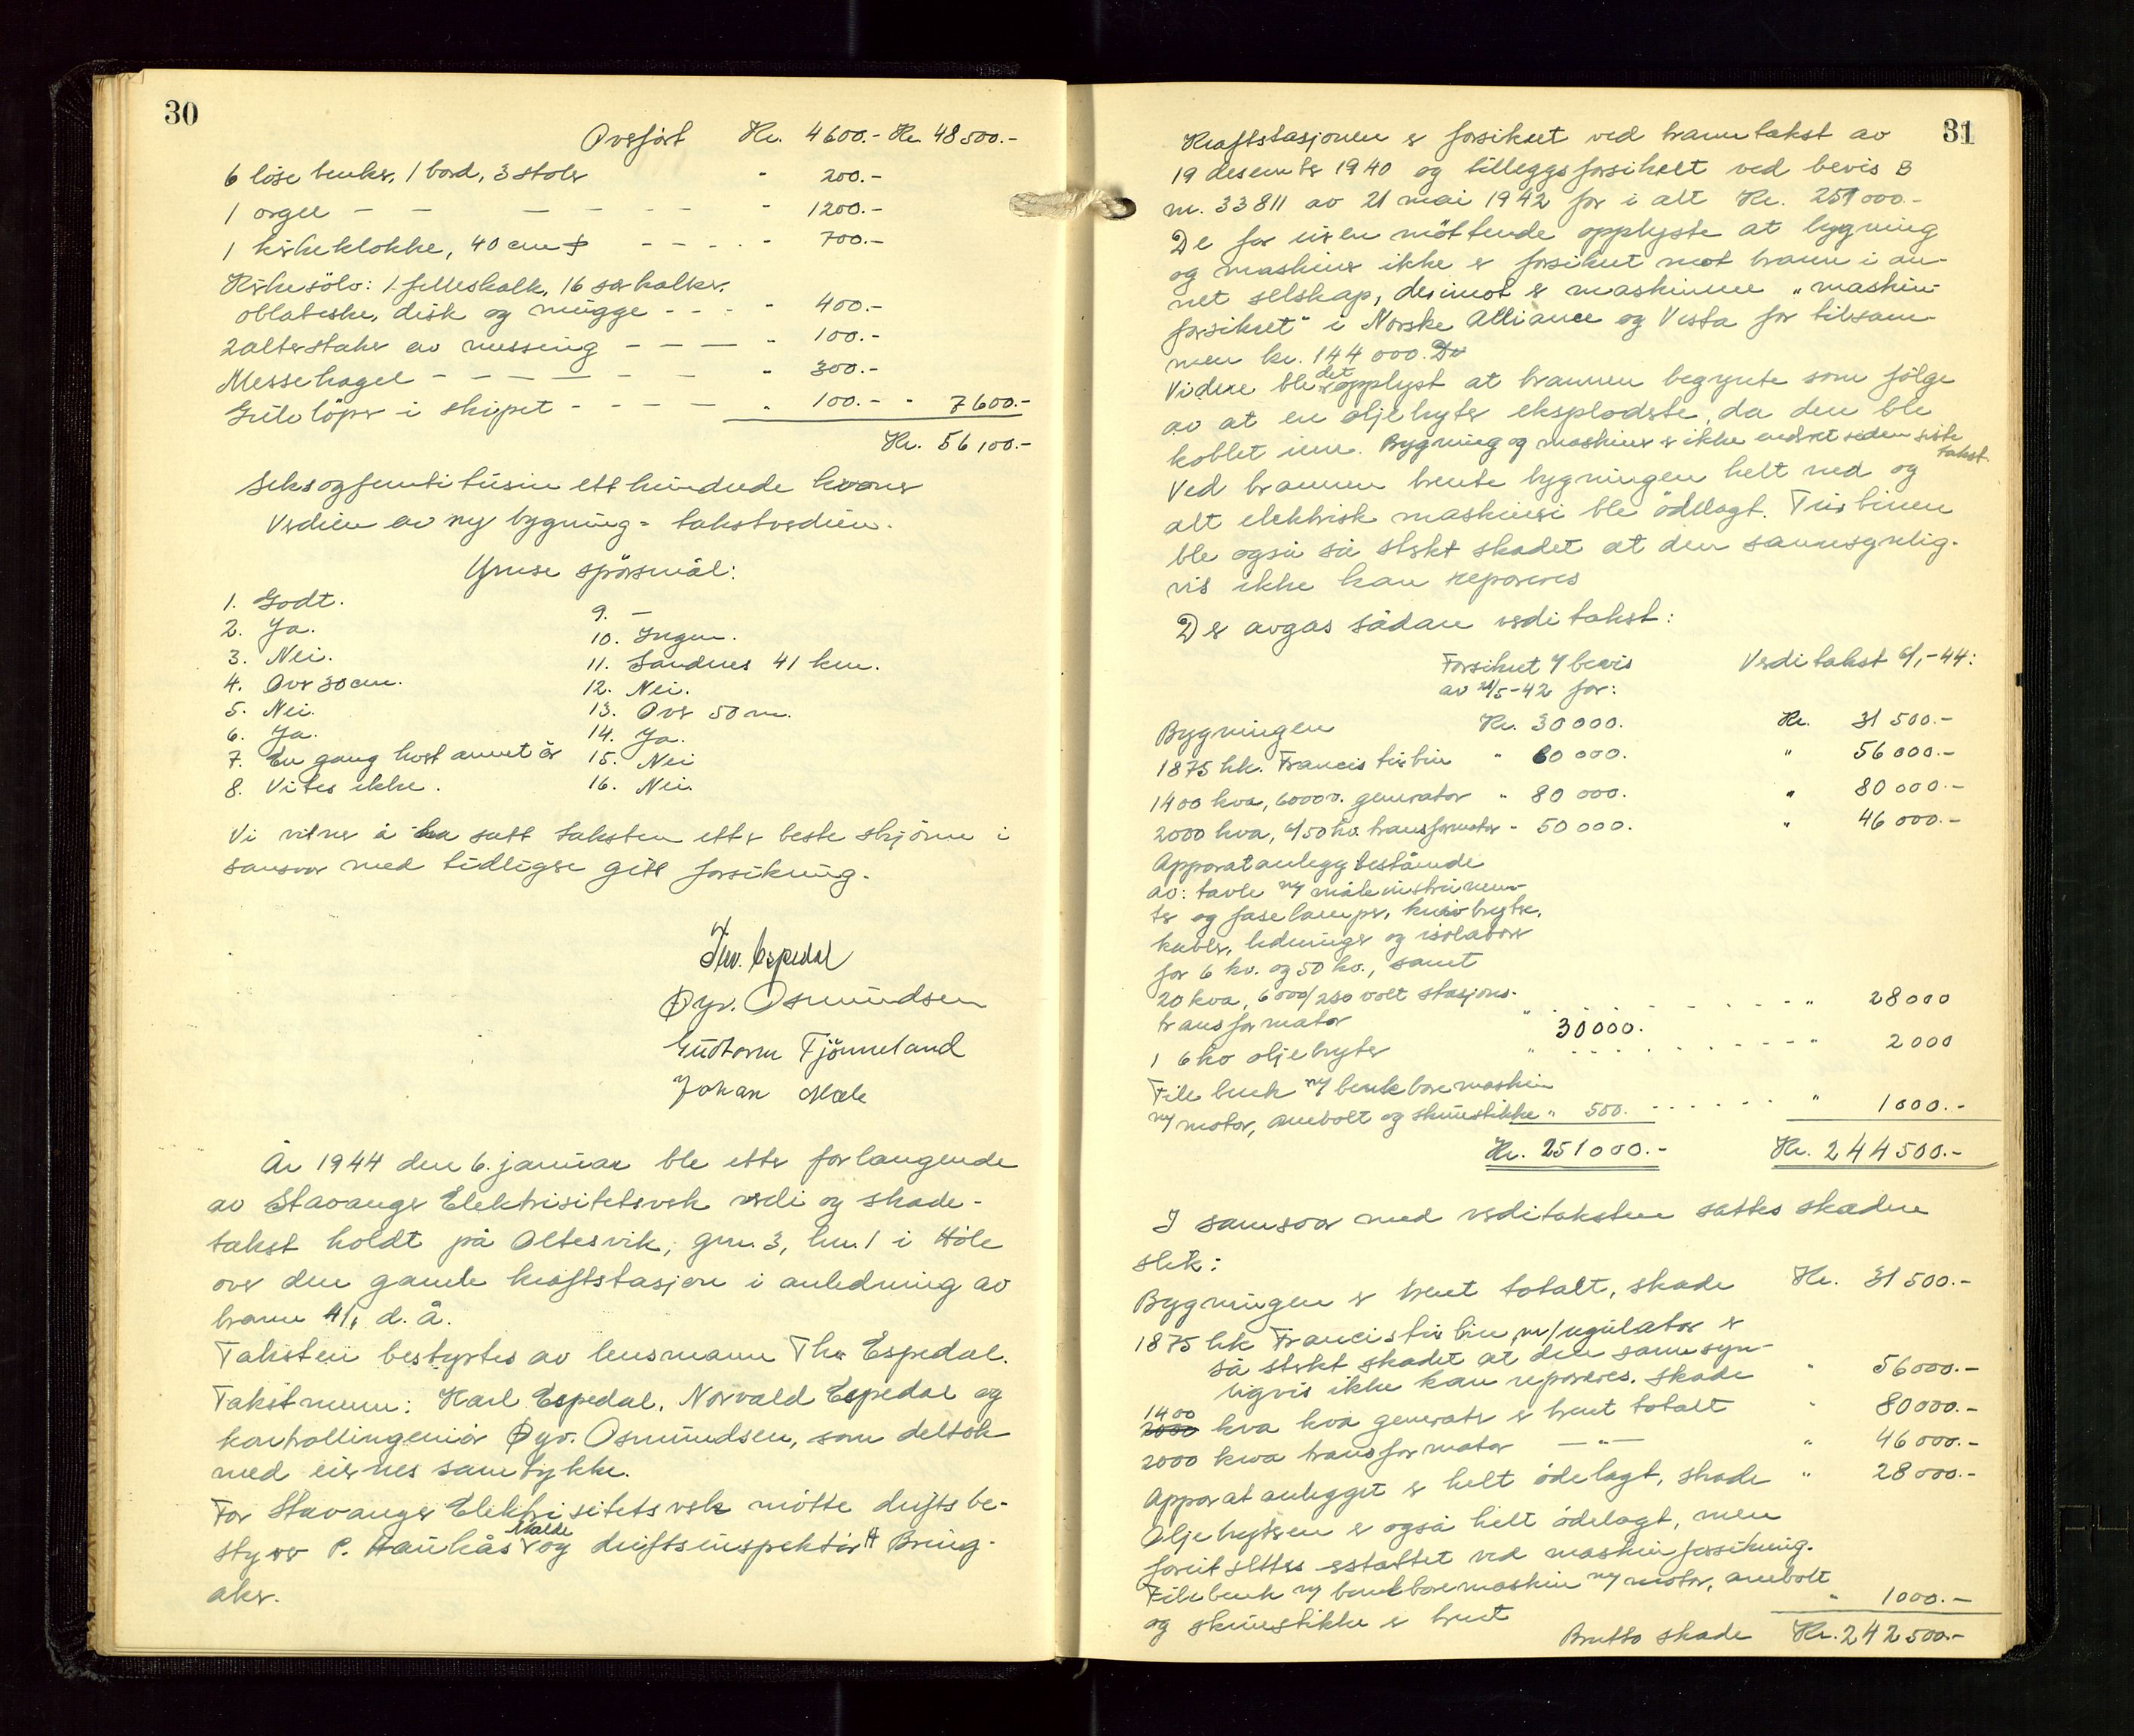 30
Overført Kr. 4600.- Kr. 48500.-
6 löse benker, 1 bord, 3 stoler " 200.-
1 orgel - - - - - - - " 1200.-
1 kirkeklokke, 40 cm - - - - - " 700.-
Kirkesölv: 1 felleskalk, 16 særkalker,
oblateske, disk og mugge - - - " 400.-
2 alterstaker av messing - - - - " 100.-
Messehagel - - - - - - - " 300.-
Gulvlöper i skipet - - - - - " 100.- " 7600.-
Kr. 56100.-
Seksogfemtitusin ett hundrede kroner
Verdien av ny bygning = takstverdien.
Ymse spörsmål:
1. Godt.
2. Ja.
3. Nei.
4. Over 30 cm.
5. Nei.
6. Ja.
7. En gang hvert annet år
8. Vites ikke.
9. -
10. Ingen.
11. Sandnes 41 km.
12. Nei.
13. Over 50 m.
14. Ja.
15. Nei
16. Nei.
Vi vitner å ha satt taksten etter beste skjönn i
samsvar med tidligere gitt forsikring.
Espedal
Öyv. Osmundsen
Guttorm Tjönneland
Johan Mæle
År 1944 den 6. januar ble etter forlangende
av Stavanger Elektrisitetsverk verdi og skade-
takst holdt på Oltesvik, gnr. 3, bnr. 1 i Höle
over den gamle kraftstasjon i anledning av
brann 4/1 d. å.
Taksten bestyrtes av lensmann Thv Espedal.
Takstmenn: Karl Espedal, Norvald Espedal og
kontrollingeniör Öyv. Osmundsen, som deltok
med eiernes samtykke.
For Stavanger Elektrisitetsverk mötte driftsbe-
styrer P. Haukås Malde og driftsinspektör H Bring-
aker.
31
Kraftstasjonen er forsikret ved branntakst av
19 desember 1940 og tilleggsforsikret ved bevis B
nr. 33811 av 21 mai 1942 for i alt Kr. 251000.-
De for eieren möttende opplyste at bygning
og maskiner ikke er forsikret mot brann i an-
net selskap, derimot er maskinene "maskin-
forsikret" i Norske Alliance og Vesta for tilsam-
men kr. 144 000. De
Videre ble det opplyst at brannen begynte som fölge
av at en oljebryter eksploderte, da den ble
koblet inn. Bygning og maskiner er ikke endret siden siste
takst.
Ved brannen brente bygningen helt ned og
alt elektrisk maskineri ble ödelagt. Turbinen
ble også så sterkt skadet at den sannsynlig-
vis ikke kan repareres
Der avgas sådan verditakst:
Forsikret e/ bevis Verditakst 6/1-44:
av 21/5-42 for:
Bygningen Kr. 30000. Kr. 31500.-
1875 hk. Francis turbin " 60 000. " 56000.-
1400 kva, 6000 v. generator " 80 000. " 80000.-
2000 kva, 6/50 kv. transformator " 50 000. " 46000.-
Apparatanlegg bestående
av: tavle m/ måleinstrumen-
ter og faselamper, knivbrytere,
kabler, ledninger og isolatorer
for 6 kv. og 50 kv., samt
20 kva, 6000/230 volt stasjons-
transformator " 30000. " 28000
1 6 kv oljebryter " " 2000
Filebenk m/ benkboremaskin
m/ motor, ambolt og skruestikke " 500. " 1000.-
Kr. 251000.- Kr. 244500.-
I samsvar med verditaksten sattes skaden
slik:
Bygningen er brent totalt, skade Kr. 31500.-
1875 hk Francisturbin m/regulator er
så sterkt skadet at den sannsyn-
ligvis ikke kan repareres. Skade " 56000.-
1400
2000 kva kva generator er brent totalt " 80000.-
2000 kva transformator — " — " 46000.-
Apparatanlegget er helt ödelagt, skade " 28000.-
Oljebryteren er også helt ödelagt, men
forutsettes erstattet ved maskinforsikring.
Filebenk m/ benkboremaskin m/ motor, ambolt
og skruestikke er brent " 1000.-
Brutto skade Kr. 242500.-